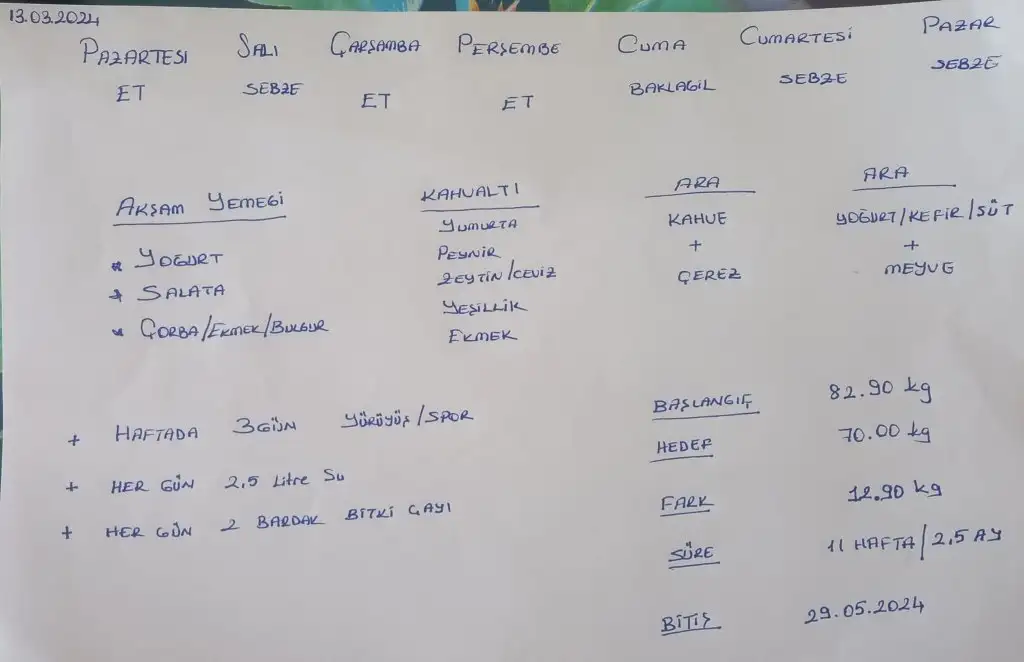 13.03.2024
PAZARTESI SALI ÇARŞAMBA PERŞEMBE CUMA CUMARTESİ PAZAR
ET SEBZE ET ET BAKLAGİL SEBZE SEBZE
AKŞAM YEMEGİ
* YOGURT
* SALATA
* ÇORBA/EKMEK/BULGUR
KAHVALTI
YUMURTA
PEYNİR
ZEYTİN/CEVİZ
YEŞİLLİK
EKMEK
ARA
KAHVE
+
ÇEREZ
ARA
YOĞURT/KEFİR/SÜT
+
MEYVE
+ HAFTADA 3 GÜN YÜRÜYÜŞ/SPOR
+ HER GÜN 2,5 Litre Su
+ HER GÜN 2 BARDAK BİTKİ ÇAYI
BAŞLANGIÇ 82.90 kg
HEDEF 70.00 kg
FARK 12.90 kg
SÜRE 11 HAFTA/2,5 AY
BİTİŞ 29.05.2024